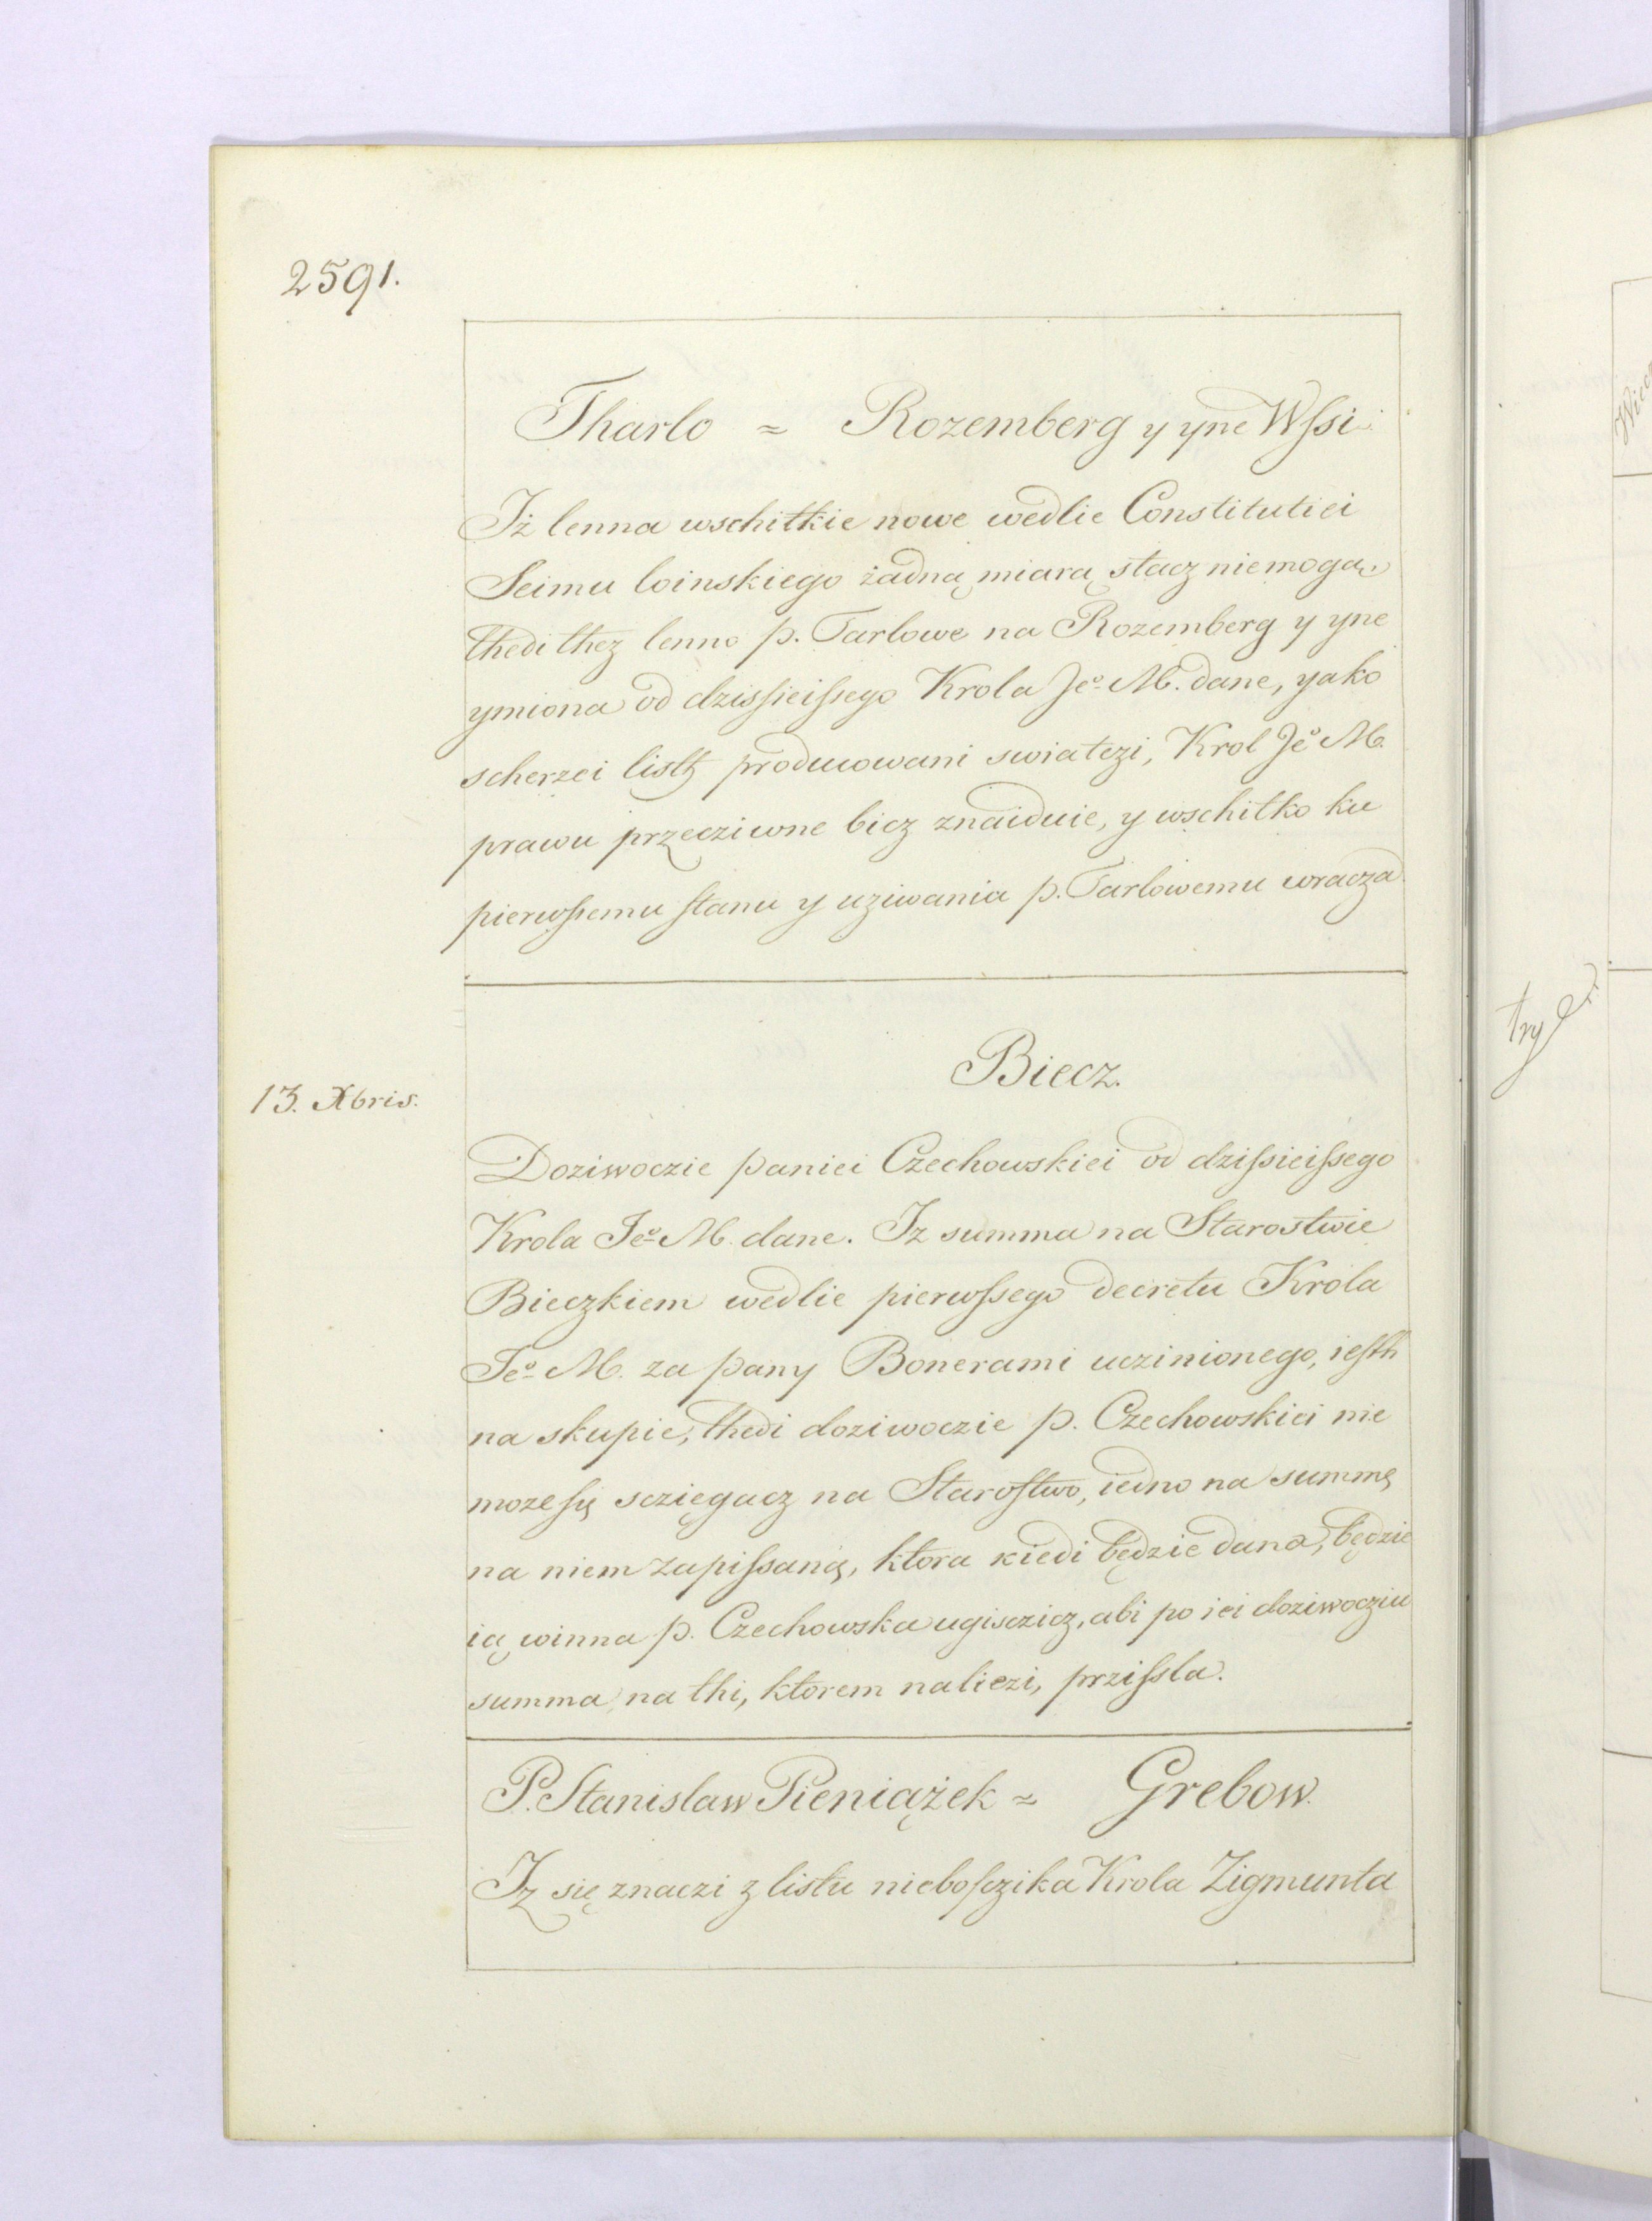 2591.
Tharlo = Rozemberg y yne Wſsi
Iż lenna wschitkie nowe wedlie Constitutiei
Seimu loinskiego żadną miarą stacz niemogą,
thedi thez lenno p. Tarlowe na Rozemberg y yne
ymiona od dzisſieiſsego Krola Jeº M. dane, yako
scherzei listh producowani swiatczi, Krol Jeº M.
prawu przecziwne bicz znaiduie, y wschitko ku
pierwſsemu stanu y uziwania p. Tarlowemu wracza
Biecz.
13. Xbris.
Doziwoczie paniei Czechowskiei od dziſsieiſsego
Krola Jeº M. dane. Iz summa na Starostwie
Bieczkiem wedlie pierwſsego decretu Krola
Jeº M. za pany Bonerami uczinionego, iesth
na skupie, thedi doziwoczie p. Czechowskiei nie
moze ſię sczięgacz na Staroſtwo, iedno na summę
na niem zapiſsaną, ktora kiedi będzie dana, będzie
ią winna p. Czechowska ugisczicz, abi po iei doziwocziu
summa na thi, ktorem naliezi, prziſsla.
P. Stanislaw Pieniążek = Grebow.
Iz się znaczi z listu nieboſczika Krola Zigmunta
try